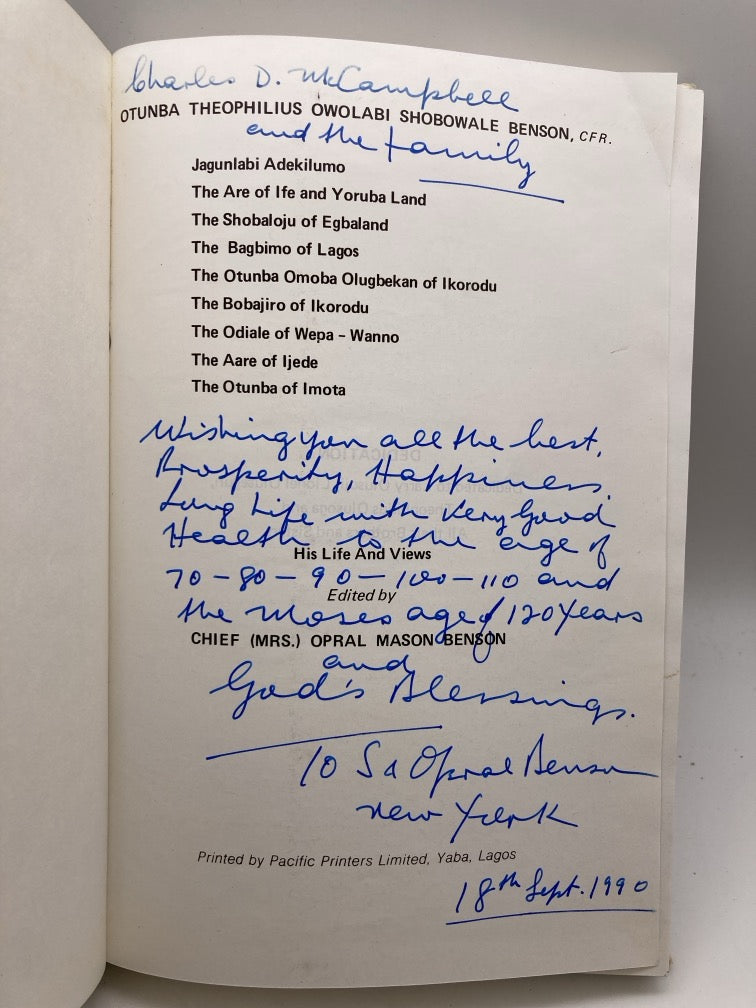 Charles D. McCampbell
OTUNBA THEOPHILIUS OWOLABI SHOBOWALE BENSON, CFR.
and the family
Jagunlabi Adekilumo
The Are of Ife and Yoruba Land
The Shobaloju of Egbaland
The Bagbimo of Lagos
The Otunba Omoba Olugbekan of Ikorodu
The Bobajiro of Ikorodu
The Odiale of Wepa - Wanno
The Aare of Ijede
The Otunba of Imota
Wishing you all the best,
Prosperity, Happiness,
Long Life with Very Good
Health to the age of
His Life And Views
70 - 80 - 90 - 100 - 110 and
Edited by
the Moses age of 120 Years
CHIEF (MRS.) OPRAL MASON BENSON
and
God's Blessings.
Opral Benson
New York
Printed by Pacific Printers Limited, Yaba, Lagos
18th Sept. 1990